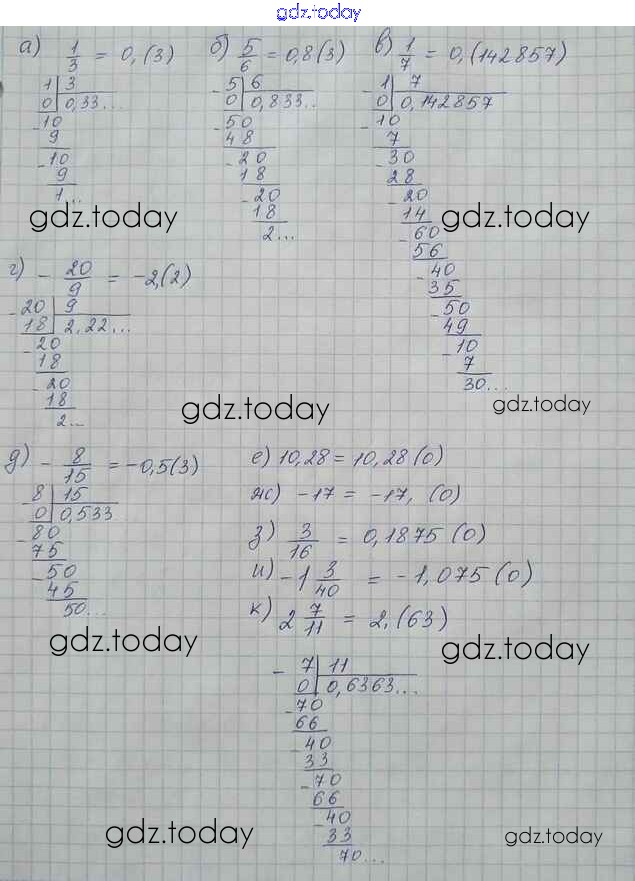 gdz.today
а) 1/3 = 0,(3)
1 | 3
0 | 0,33...
-10
9
-10
9
1...
б) 5/6 = 0,8(3)
- 5 | 6
0 | 0,833...
-50
48
-20
18
-20
18
2...
в) 1/7 = 0,(142857)
- 1 | 7
0 | 0,142857
-10
7
-30
28
-20
14
-60
56
-40
35
-50
49
-10
7
30...
gdz.today
gdz.today
г) - 20/9 = -2,(2)
-20 | 9
18 | 2,22...
-20
18
-20
18
2...
gdz.today
gdz.today
д) - 8/15 = -0,5(3)
8 | 15
0 | 0,533
-80
75
-50
45
50...
gdz.today
е) 10,28 = 10,28(0)
ж) -17 = -17, (0)
з) 3/16 = 0,1875(0)
и) -1 3/40 = -1,075(0)
к) 2 7/11 = 2,(63)
gdz.today
- 7 | 11
0 | 0,6363...
-70
66
-40
33
-70
66
-40
33
70...
gdz.today
gdz.today